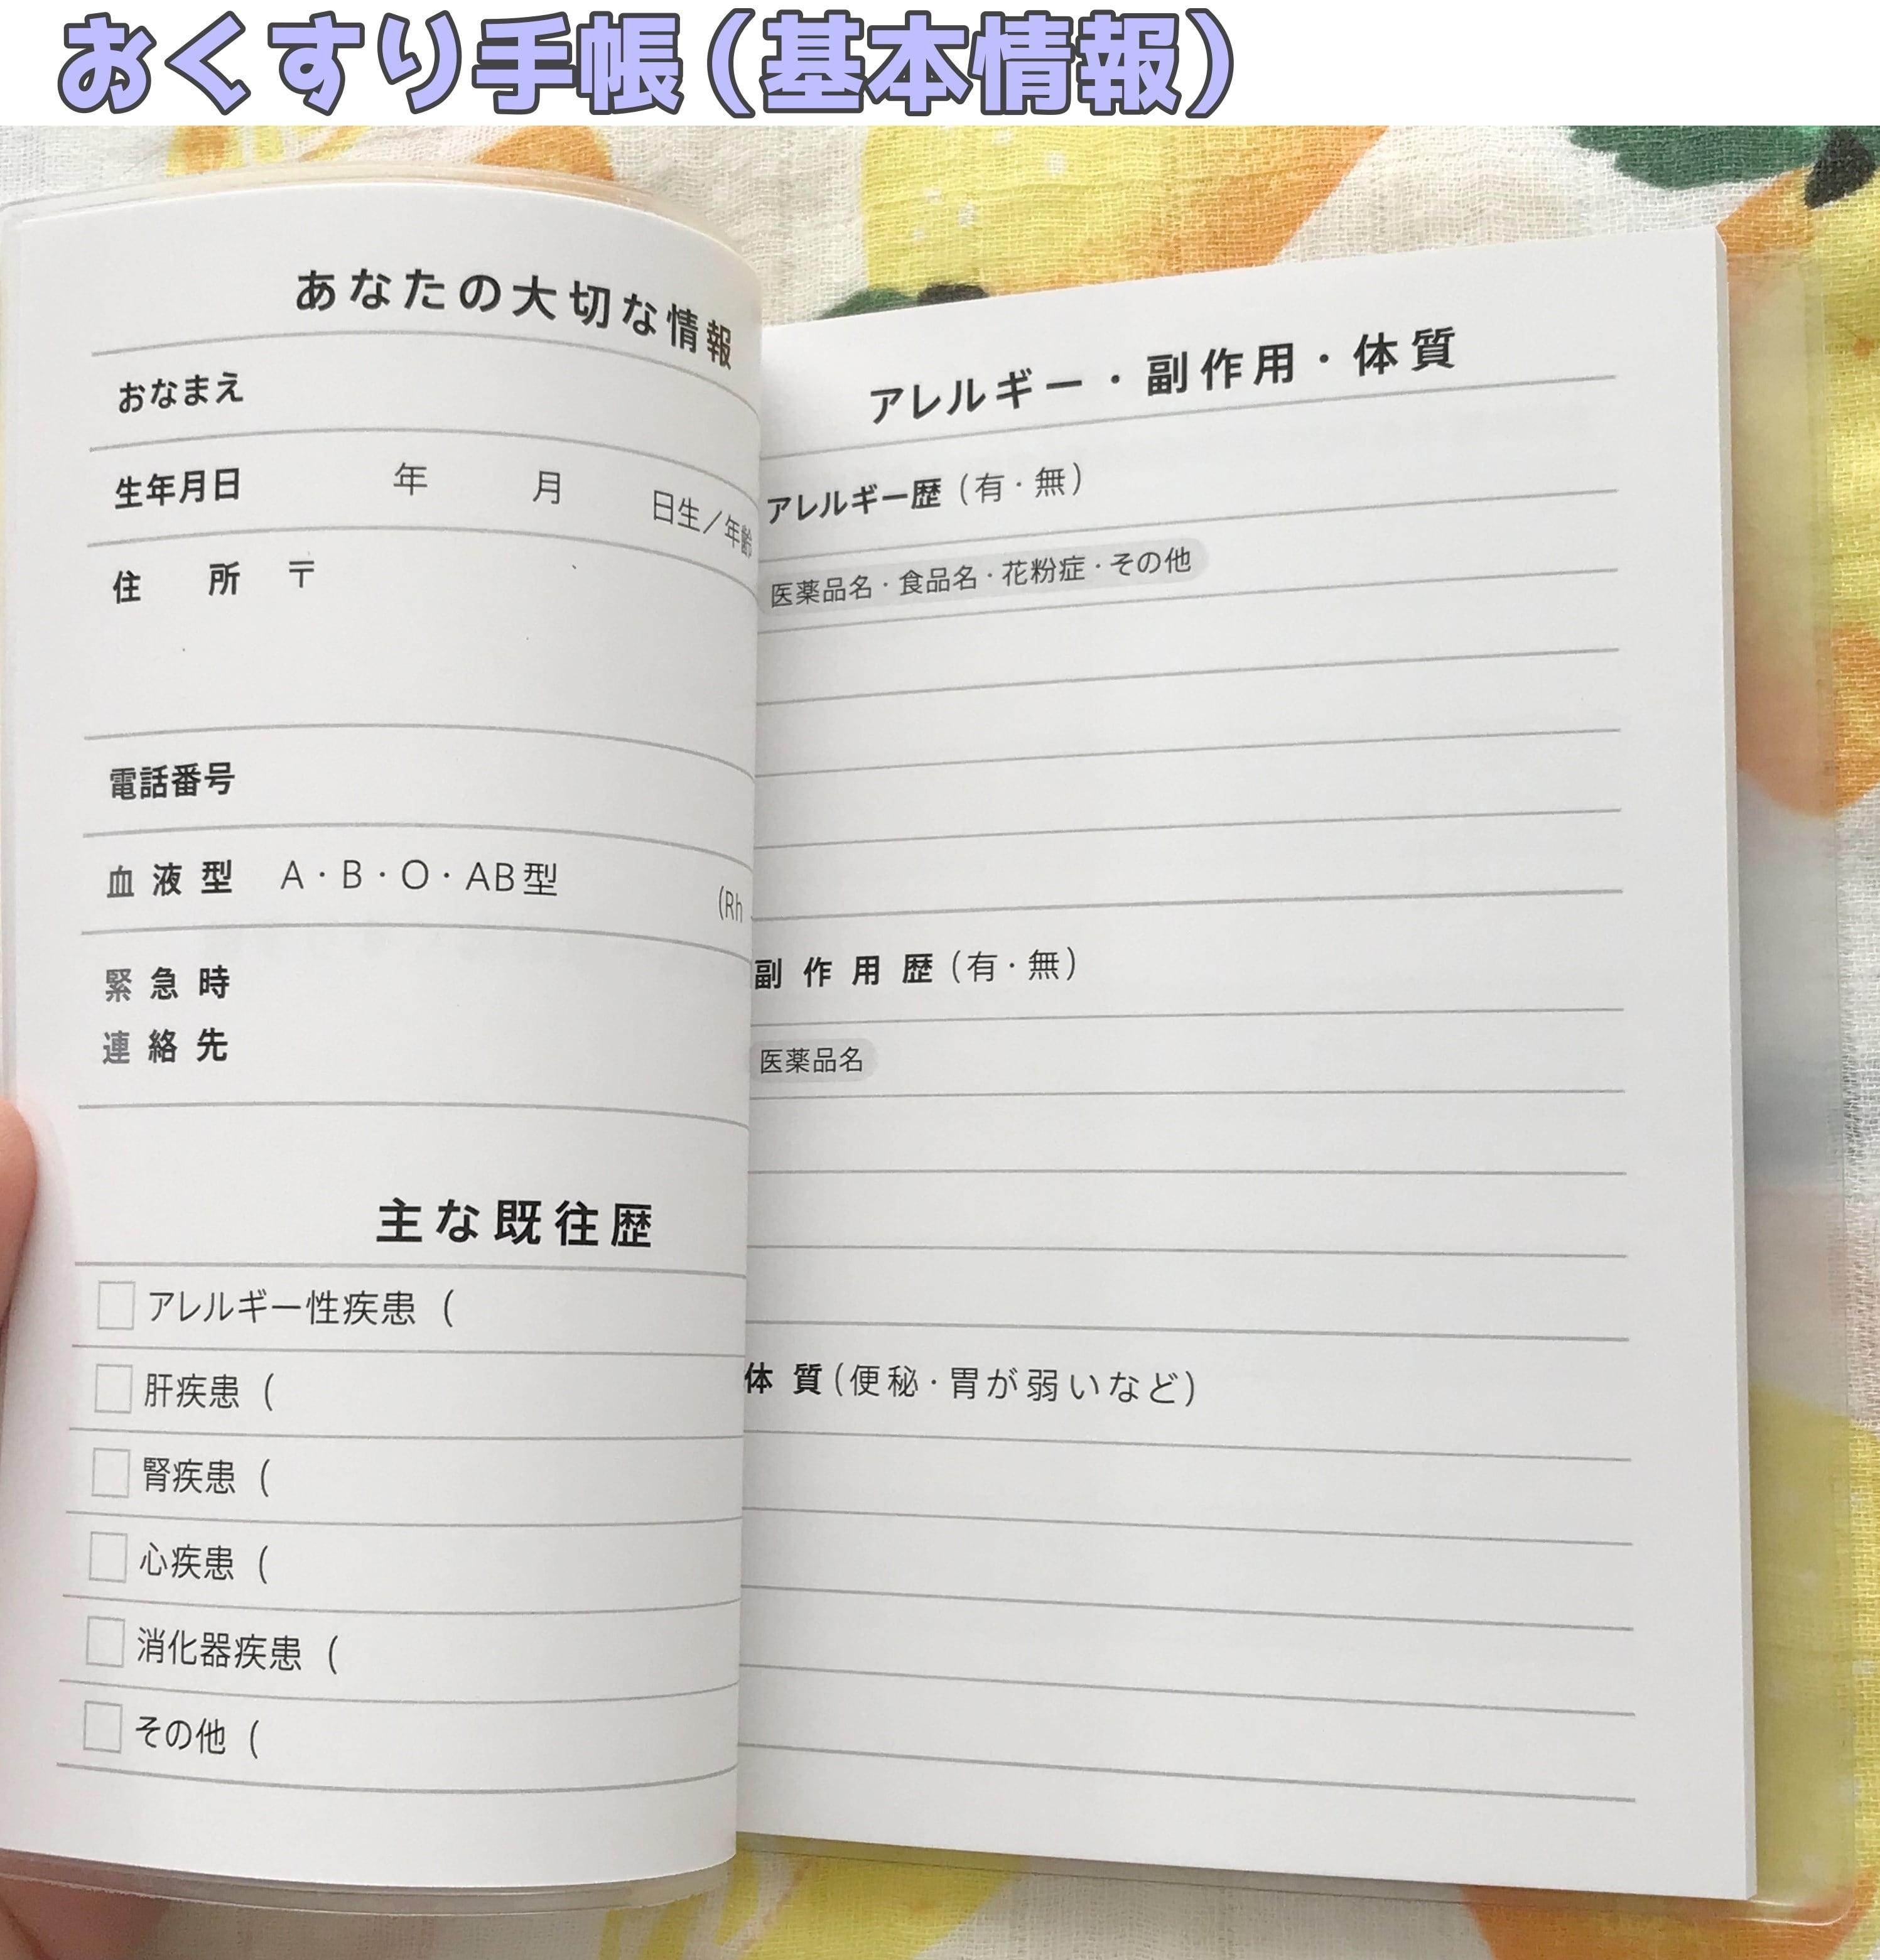 おくすり手帳(基本情報)
あなたの大切な情報
おなまえ
生年月日 年 月 日生/年齢
住 所 〒
電話番号
血液型 A・B・O・AB型 (Rh
緊急時
連絡先
主な既往歴
アレルギー性疾患 (
肝疾患 (
腎疾患 (
心疾患 (
消化器疾患 (
その他 (
アレルギー・副作用・体質
アレルギー歴(有・無)
医薬品名・食品名・花粉症・その他
副作用歴(有・無)
医薬品名
体質(便秘・胃が弱いなど)